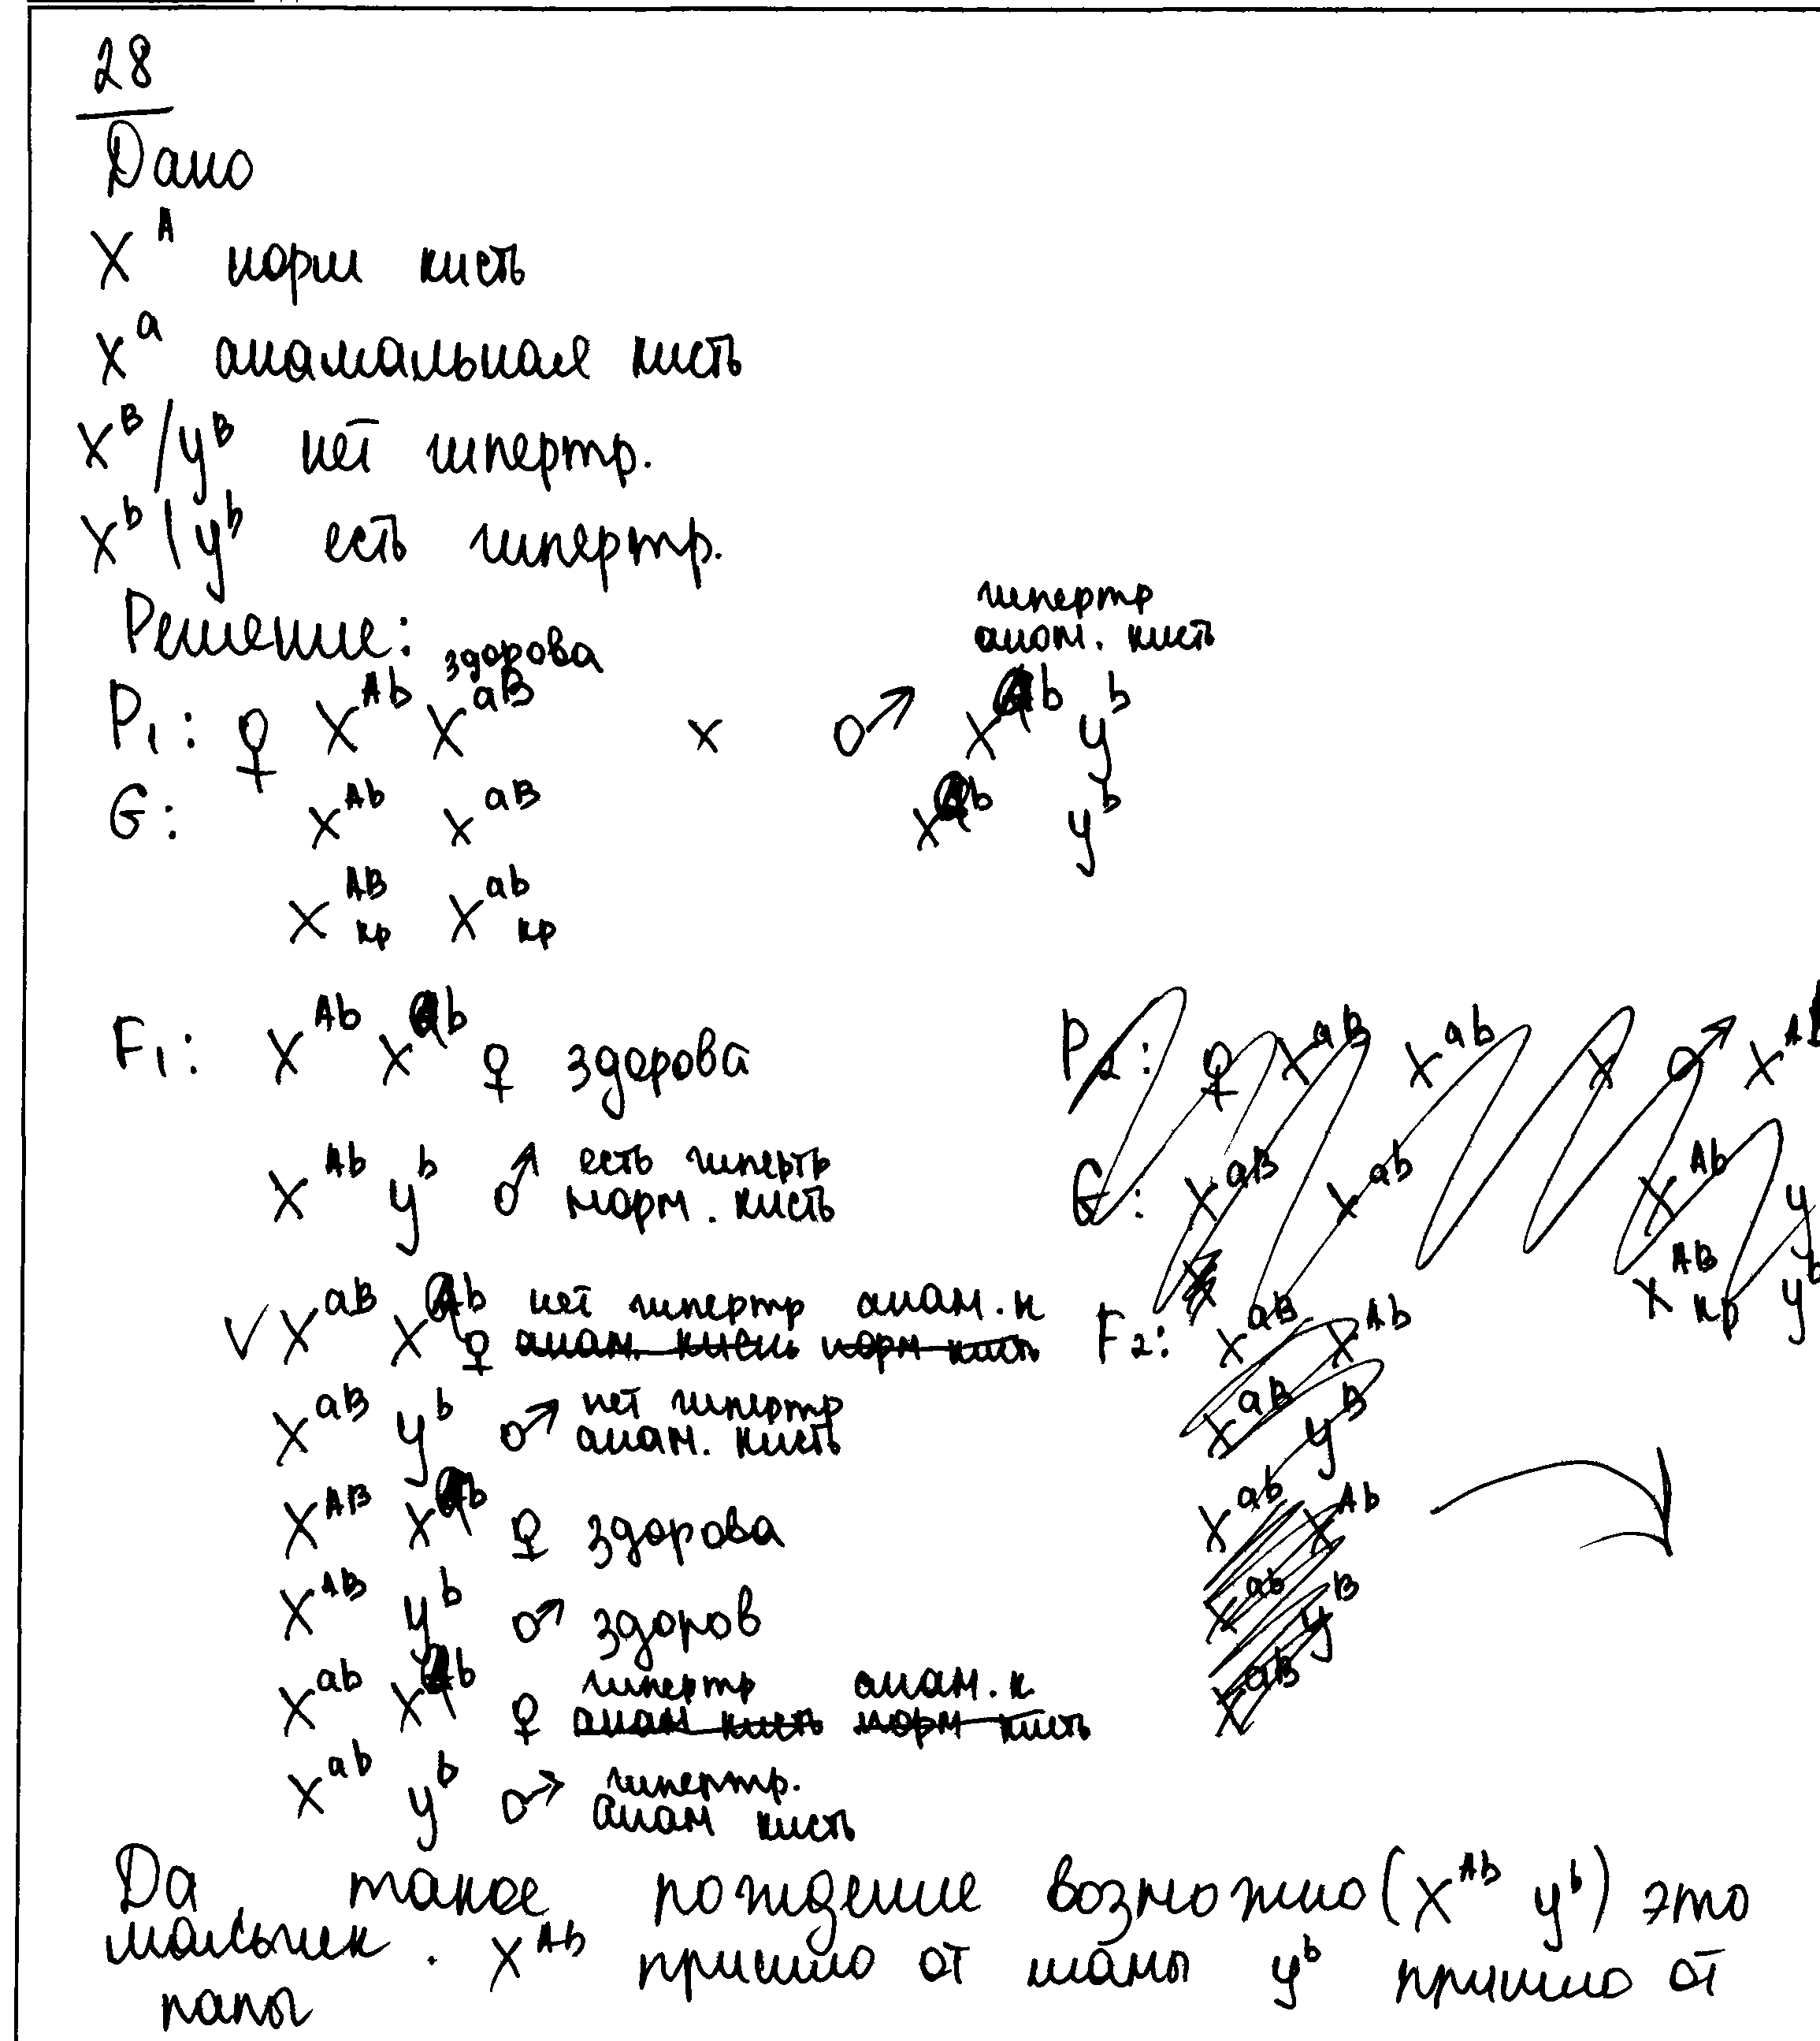 28
Дано
X^A норм кисть
X^a анамальная кисть
X^B/y^B нет гипертр.
X^b | y^b есть гипертр.
Решение:
здорова
гипертр
аном. кисть
P₁: ♀ X^Ab X^aB x ♂ X^ab y^b
G: X^Ab X^aB X^ab y^b
X^AB кр X^ab кр
F₁: X^Ab X^ab ♀ здорова
X^Ab y^b ♂ есть гипертр
норм. кисть
✓ X^aB X^ab ♀ нет гипертр анам. к
анам. кисть норм кисть
X^aB y^b ♂ нет гипертр
анам. кисть
X^AB X^ab ♀ здорова
X^AB y^b ♂ здоров
X^ab X^ab ♀ гипертр анам. к
анам кисть норм кисть
X^ab y^b ♂ гипертр.
анам кисть
P₂: ♀ X^aB X^ab x ♂
G: X^aB X^ab X^Ab y
X^AB кр y^b
F₂: X^aB X^Ab
X^aB y^B
X^ab X^Ab
X^ab y^B
X^aB
Да такое рождение возможно (X^Ab y^b) это
мальчик. X^Ab пришло от мамы y^b пришло от
папы